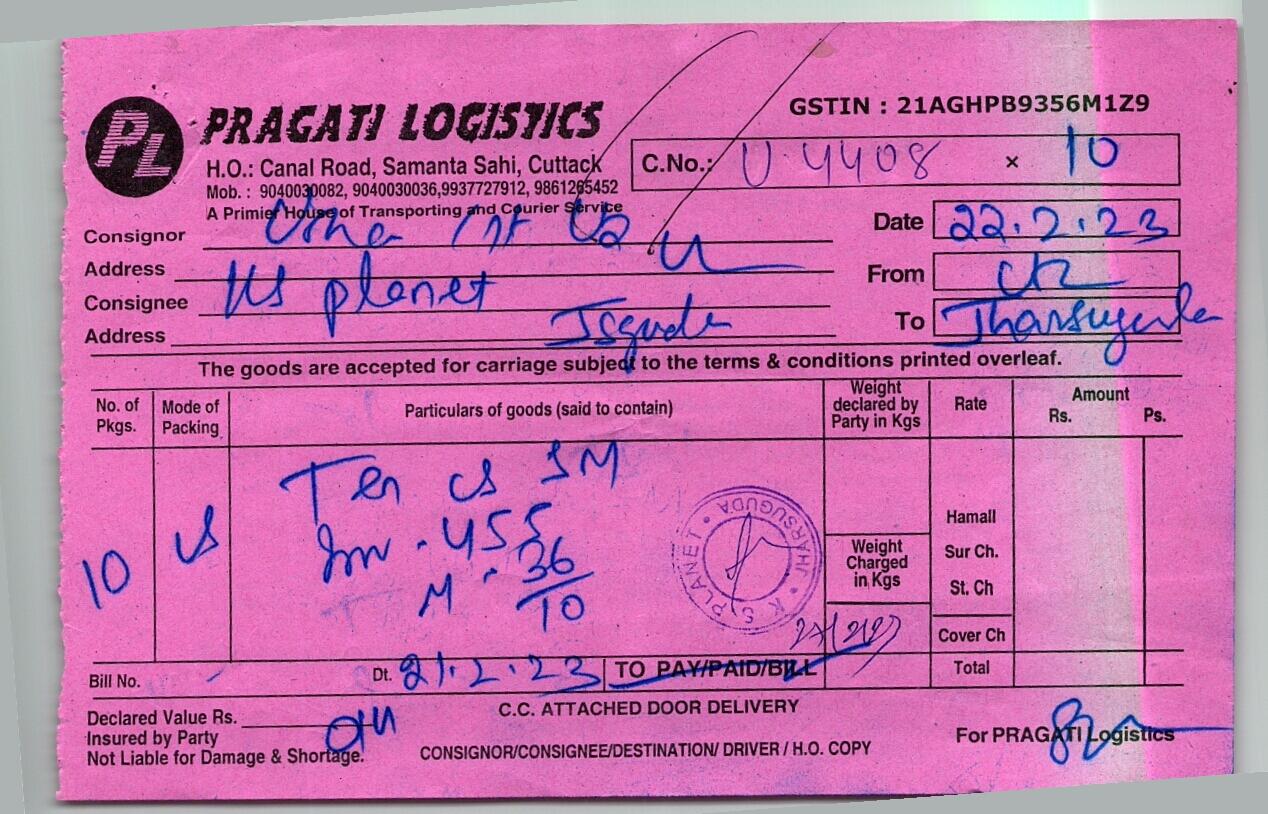 PL
PRAGATI LOGISTICS
GSTIN : 21AGHPB9356M1Z9
H.O.: Canal Road, Samanta Sahi, Cuttack
C.No.: U 4408 × 10
Mob. : 9040030082, 9040030036,9937727912, 9861265452
A Primier House of Transporting and Courier Service
Consignor Usha
Date 22.2.23
Address
From
Consignee KS planet
To Jharsuguda
Address Jsguda
The goods are accepted for carriage subject to the terms & conditions printed overleaf.
No. of Pkgs. Mode of Packing Particulars of goods (said to contain) Weight declared by Party in Kgs Rate Amount Rs. Ps.
10 Ten cs SM
Inv - 455
M - 36
10
KS PLANET • JHARSUGUDA •
Hamall
Weight Charged in Kgs
Sur Ch.
St. Ch
Cover Ch
Bill No. Dt. 21.2.23 TO PAY/PAID/BILL Total
Declared Value Rs.
C.C. ATTACHED DOOR DELIVERY
Insured by Party
For PRAGATI Logistics
Not Liable for Damage & Shortage.
CONSIGNOR/CONSIGNEE/DESTINATION/ DRIVER / H.O. COPY